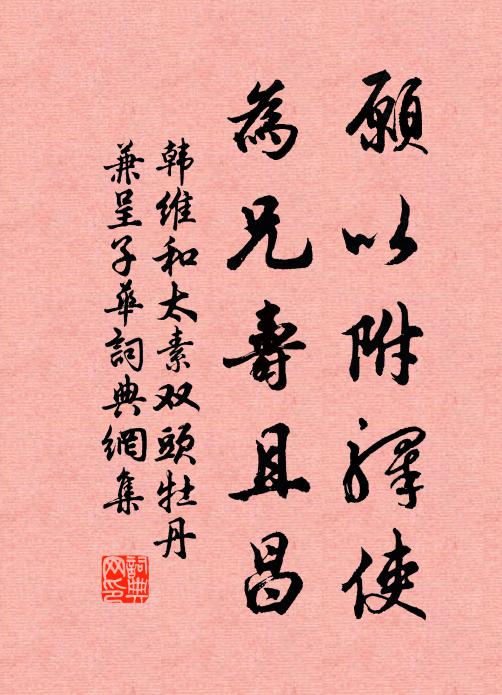 願以附驛使
為兄壽且昌
韩維和太素双頭牡丹
兼呈子華詞典網集
詞典网印